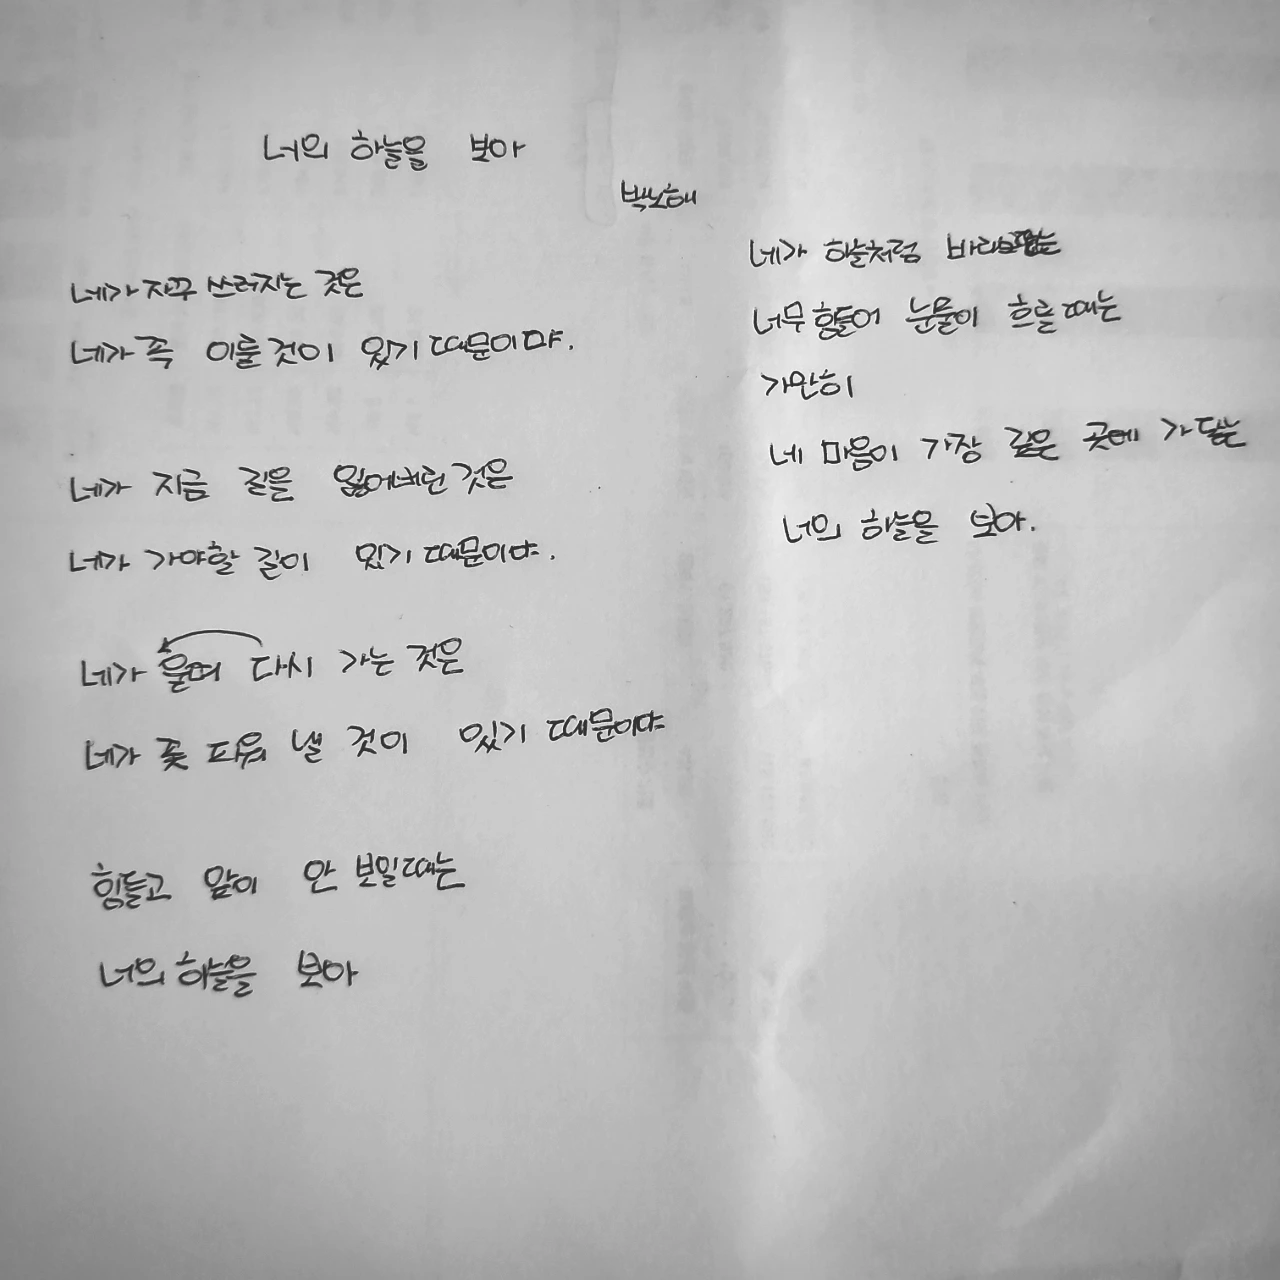 너의 하늘을 보아
박노해
네가 자꾸 쓰러지는 것은
네가 꼭 이룰 것이 있기 때문이야.
네가 지금 길을 잃어버린 것은
네가 가야할 길이 있기 때문이야.
네가 울며 다시 가는 것은
네가 꽃 피워 낼 것이 있기 때문이야
힘들고 앞이 안 보일때는
너의 하늘을 보아
네가 하늘처럼
너무 힘들어 눈물이 흐를때는
가만히
네 마음이 가장 깊은 곳에 가 닿는
너의 하늘을 보아.